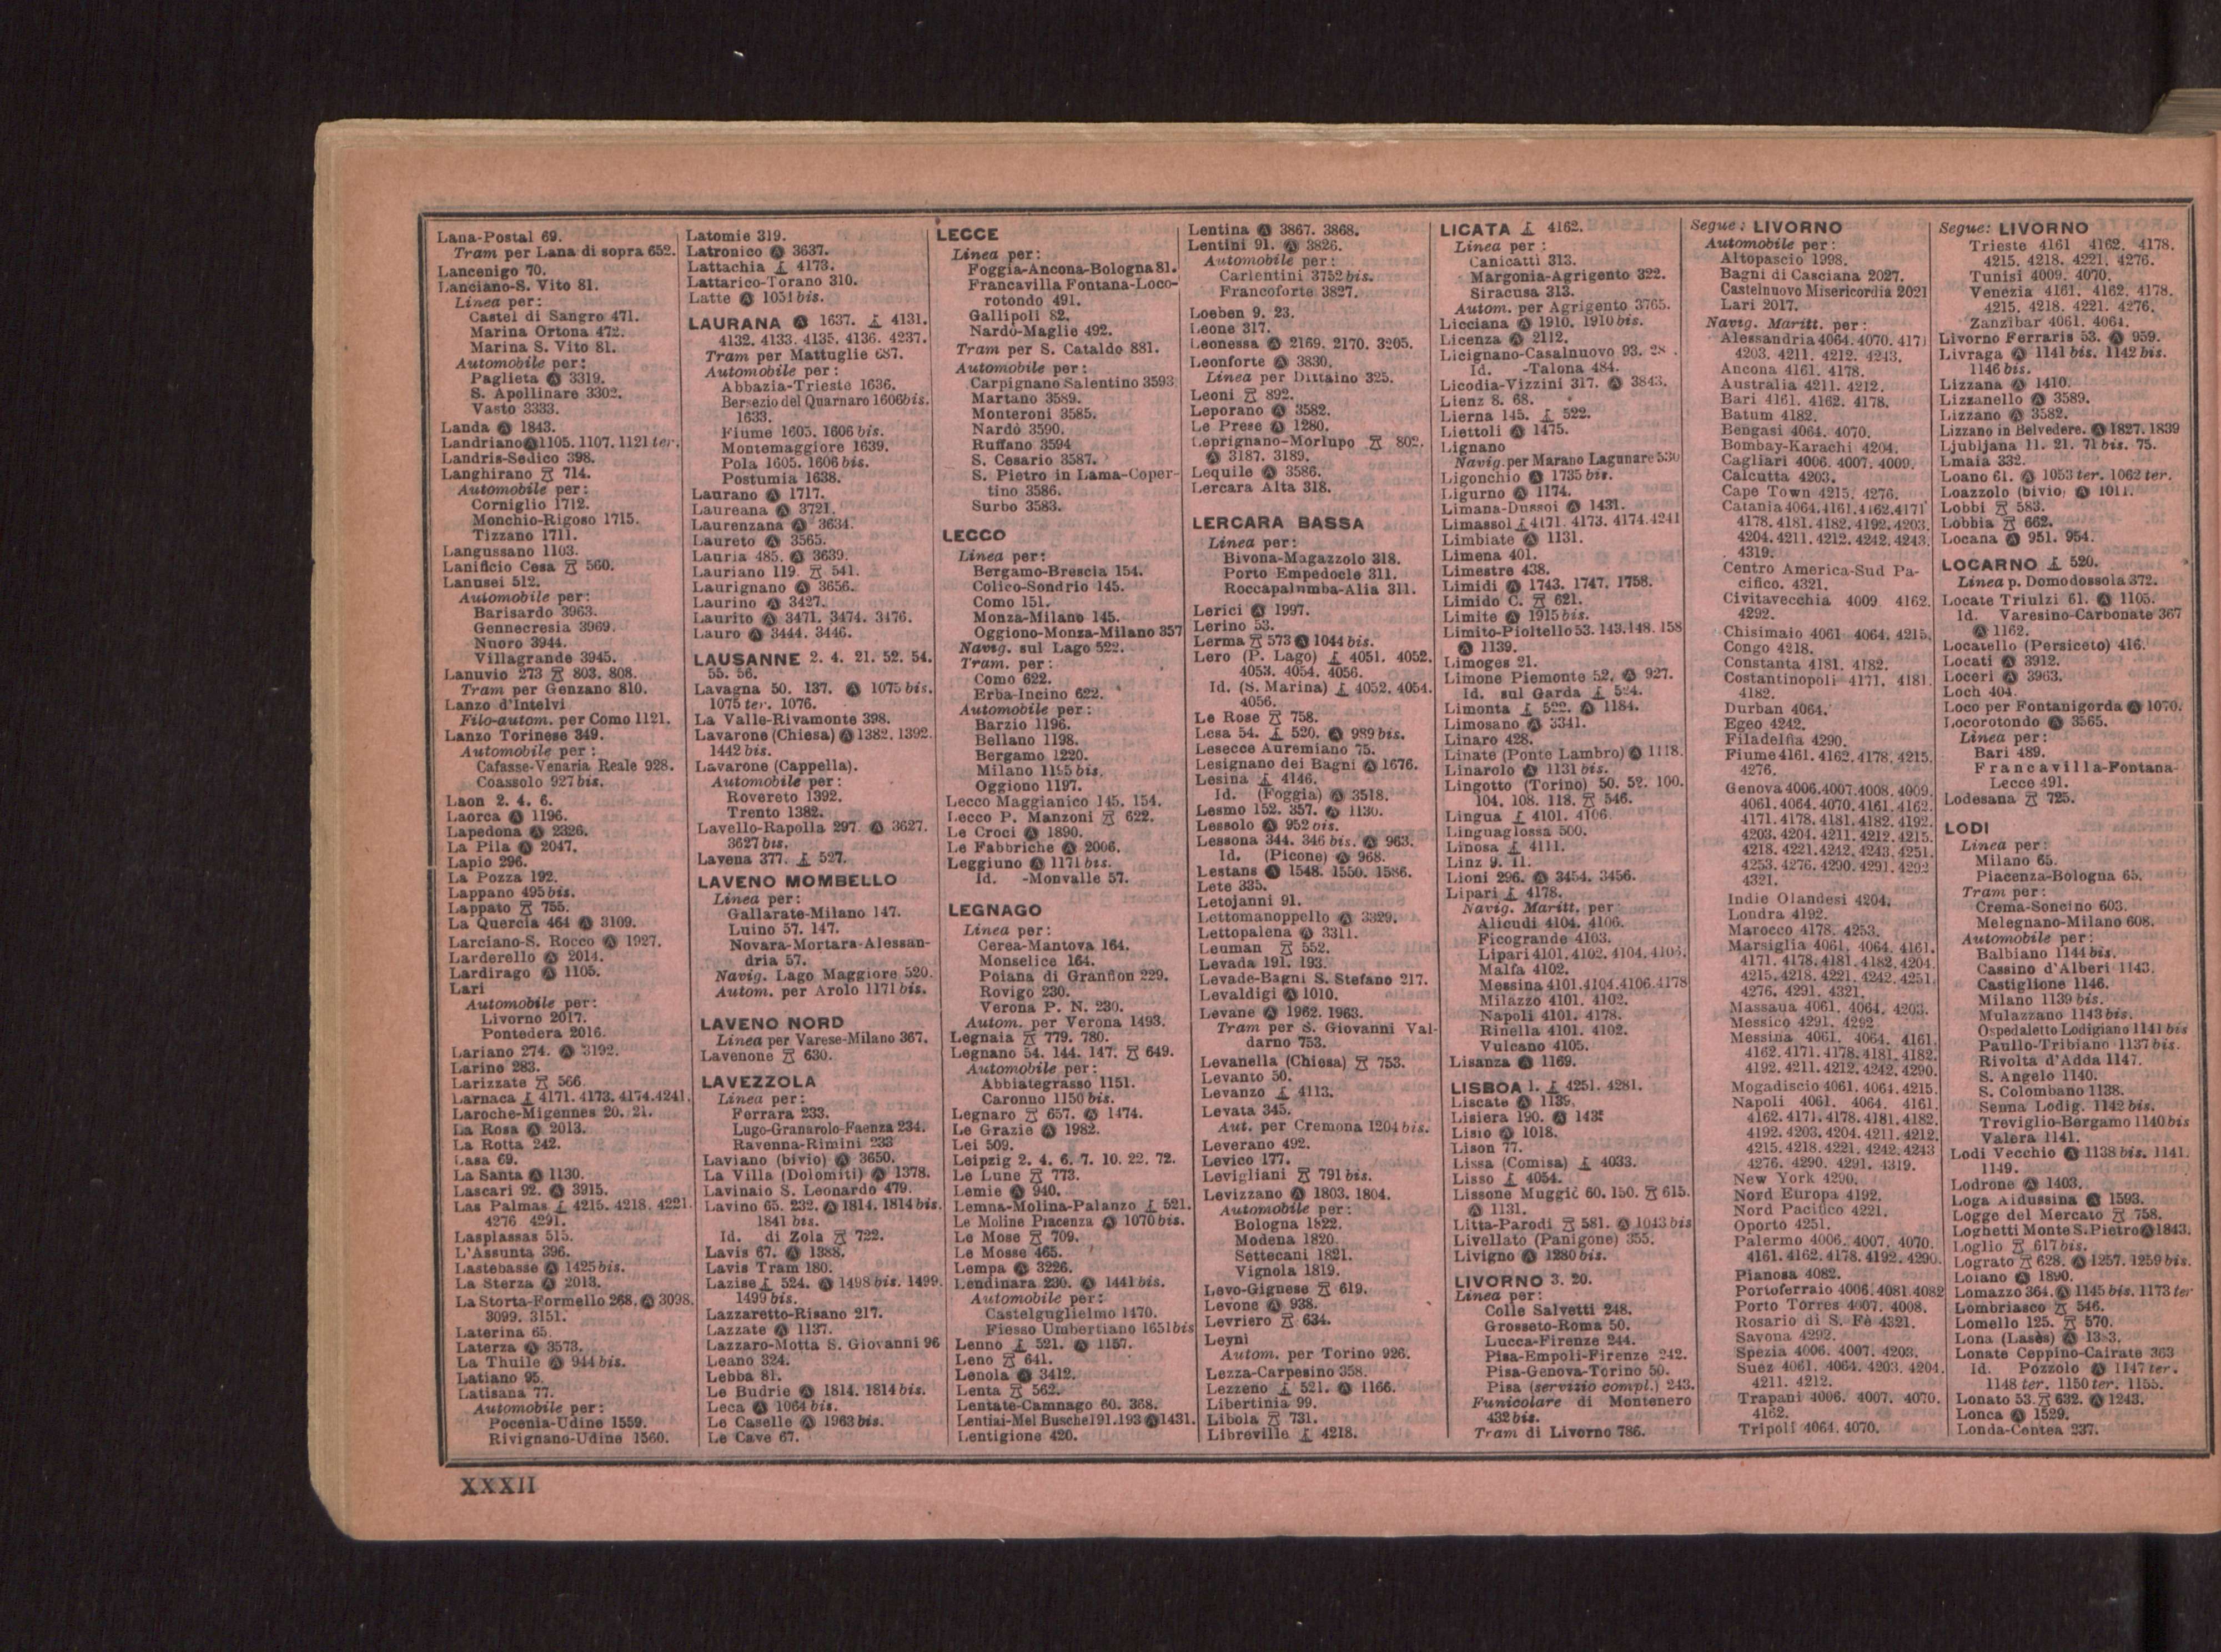 Lana-Postal 69.
Tram per Lana di sopra 652.
Lancenigo 70.
Lanciano-S. Vito 81.
Linea per:
Castel di Sangro 471.
Marina Ortona 472.
Marina S. Vito 81.
Automobile per:
Paglieta Ⓐ 3319.
S. Apollinare 3302.
Vasto 3333.
Landa Ⓐ 1843.
Landriano Ⓐ 1105. 1107. 1121 ter.
Landris-Sedico 398.
Langhirano 714.
Automobile per:
Corniglio 1712.
Monchio-Rigoso 1715.
Tizzano 1711.
Langussano 1103.
Lanificio Cesa 560.
Lanusei 512.
Automobile per:
Barisardo 3963.
Gennecresia 3969.
Nuoro 3944.
Villagrande 3945.
Lanuvio 273 803. 808.
Tram per Genzano 810.
Lanzo d'Intelvi
Filo-autom. per Como 1121.
Lanzo Torinese 349.
Automobile per:
Cafasse-Venaria Reale 928.
Coassolo 927 bis.
Laon 2. 4. 6.
Laorca Ⓐ 1196.
Lapedona Ⓐ 2326.
La Pila Ⓐ 2047.
Lapio 296.
La Pozza 192.
Lappano 495 bis.
Lappato 755.
La Quercia 464 Ⓐ 3109.
Larciano-S. Rocco Ⓐ 1927.
Larderello Ⓐ 2014.
Lardirago Ⓐ 1105.
Lari
Automobile per:
Livorno 2017.
Pontedera 2016.
Lariano 274. Ⓐ 3192.
Larino 283.
Larizzate 566
Larnaca 4171. 4173. 4174. 4241.
Laroche-Migennes 20. 21.
La Rosa Ⓐ 2013.
La Rotta 242.
Lasa 69.
La Santa Ⓐ 1130.
Lascari 92. Ⓐ 3915.
Las Palmas 4215. 4218. 4221.
4276 4291.
Lasplassas 515.
L'Assunta 396.
Lastebasse Ⓐ 1425 bis.
La Sterza Ⓐ 2013.
La Storta-Formello 268. Ⓐ 3098.
3099. 3151.
Laterina 65.
Laterza Ⓐ 3573.
La Thuile Ⓐ 944 bis.
Latiano 95.
Latisana 77.
Automobile per:
Pocenia-Udine 1559.
Rivignano-Udine 1560.
Latomie 319.
Latronico Ⓐ 3637.
Lattachia 4173.
Lattarico-Torano 310.
Latte Ⓐ 1051 bis.
LAURANA Ⓐ 1637. 4131.
4132. 4133. 4135. 4136. 4237.
Tram per Mattuglie 687.
Automobile per:
Abbazia-Trieste 1636.
Bersezio del Quarnaro 1606 bis.
1633.
Fiume 1605. 1606 bis.
Montemaggiore 1639.
Pola 1605. 1606 bis.
Postumia 1638.
Laurano Ⓐ 1717.
Laureana Ⓐ 3721.
Laurenzana Ⓐ 3634.
Laureto Ⓐ 3565.
Lauria 485. Ⓐ 3639.
Lauriano 119. 541.
Laurignano Ⓐ 3656.
Laurino Ⓐ 3427.
Laurito Ⓐ 3471. 3474. 3476.
Lauro Ⓐ 3444. 3446.
LAUSANNE 2. 4. 21. 52. 54.
55. 56.
Lavagna 50. 137. Ⓐ 1075 bis.
1075 ter. 1076.
La Valle-Rivamonte 398.
Lavarone (Chiesa) Ⓐ 1382. 1392.
1442 bis.
Lavarone (Cappella).
Automobile per:
Rovereto 1392.
Trento 1382.
Lavello-Rapolla 297. Ⓐ 3627.
3627 bis.
Lavena 377. 527.
LAVENO MOMBELLO
Linea per:
Gallarate-Milano 147.
Luino 57. 147.
Novara-Mortara-Alessan-
dria 57.
Navig. Lago Maggiore 520.
Autom. per Arolo 1171 bis.
LAVENO NORD
Linea per Varese-Milano 367.
Lavenone 630.
LAVEZZOLA
Linea per:
Ferrara 233.
Lugo-Granarolo-Faenza 234.
Ravenna-Rimini 233
Laviano (bivio) Ⓐ 3650.
La Villa (Dolomiti) Ⓐ 1378.
Lavinaio S. Leonardo 479.
Lavino 65. 232. Ⓐ 1814. 1814 bis.
1841 bis.
Id. di Zola 722.
Lavis 67. Ⓐ 1388.
Lavis Tram 180.
Lazise 524. Ⓐ 1498 bis. 1499.
1499 bis.
Lazzaretto-Risano 217.
Lazzate Ⓐ 1137.
Lazzaro-Motta S. Giovanni 96
Leano 324.
Lebba 81.
Le Budrie Ⓐ 1814. 1814 bis.
Leca Ⓐ 1064 bis.
Le Caselle Ⓐ 1963 bis.
Le Cave 67.
LECCE
Linea per:
Foggia-Ancona-Bologna 81.
Francavilla Fontana-Loco-
rotondo 491.
Gallipoli 82.
Nardò-Maglie 492.
Tram per S. Cataldo 881.
Automobile per:
Carpignano Salentino 3593.
Martano 3589.
Monteroni 3585.
Nardò 3590.
Ruffano 3594
S. Cesario 3587.
S. Pietro in Lama-Coper-
tino 3586.
Surbo 3583.
LECCO
Linea per:
Bergamo-Brescia 154.
Colico-Sondrio 145.
Como 151.
Monza-Milano 145.
Oggiono-Monza-Milano 357
Navig. sul Lago 522.
Tram. per:
Como 622.
Erba-Incino 622.
Automobile per:
Barzio 1196.
Bellano 1198.
Bergamo 1220.
Milano 1195 bis.
Oggiono 1197.
Lecco Maggianico 145. 154.
Lecco P. Manzoni 622.
Le Croci Ⓐ 1890.
Le Fabbriche Ⓐ 2006.
Leggiuno Ⓐ 1171 bis.
Id. -Monvalle 57.
LEGNAGO
Linea per:
Cerea-Mantova 164.
Monselice 164.
Poiana di Granfion 229.
Rovigo 230.
Verona P. N. 230.
Autom. per Verona 1493.
Legnaia 779. 780.
Legnano 54. 144. 147. 649.
Automobile per:
Abbiategrasso 1151.
Caronno 1150 bis.
Legnaro 657. Ⓐ 1474.
Le Grazie Ⓐ 1982.
Lei 509.
Leipzig 2. 4. 6. 7. 10. 22. 72.
Le Lune 773.
Lemie Ⓐ 940.
Lemna-Molina-Palanzo 521.
Le Moline Piacenza Ⓐ 1070 bis.
Le Mose 709.
Le Mosse 465.
Lempa Ⓐ 3226.
Lendinara 230. Ⓐ 1441 bis.
Automobile per:
Castelguglielmo 1470.
Fiesso Umbertiano 1651 bis
Lenno 521. Ⓐ 1157.
Leno 641.
Lenola Ⓐ 3412.
Lenta 562.
Lentate-Camnago 60. 368.
Lentiai-Mel Busche 191. 193 Ⓐ 1431.
Lentigione 420.
Lentina Ⓐ 3867. 3868.
Lentini 91. Ⓐ 3826.
Automobile per:
Carlentini 3752 bis.
Francoforte 3827.
Loeben 9. 23.
Leone 317.
Leonessa Ⓐ 2169. 2170. 3205.
Leonforte Ⓐ 3830.
Linea per Dittaino 325.
Leoni 892.
Leporano Ⓐ 3582.
Le Prese Ⓐ 1280.
Leprignano-Morlupo 802.
Ⓐ 3187. 3189.
Lequile Ⓐ 3586.
Lercara Alta 318.
LERCARA BASSA
Linea per:
Bivona-Magazzolo 318.
Porto Empedocle 311.
Roccapalumba-Alia 311.
Lerici Ⓐ 1997.
Lerino 53.
Lerma 573 Ⓐ 1044 bis.
Lero (P. Lago) 4051. 4052.
4053. 4054. 4056.
Id. (S. Marina) 4052. 4054.
4056.
Le Rose 758.
Lesa 54. 520. Ⓐ 989 bis.
Lesecce Auremiano 75.
Lesignano dei Bagni Ⓐ 1676.
Lesina 4146.
Id. (Foggia) Ⓐ 3518.
Lesmo 152. 357. Ⓐ 1130.
Lessolo Ⓐ 952 bis.
Lessona 344. 346 bis. Ⓐ 963.
Id. (Picone) Ⓐ 968.
Lestans Ⓐ 1548. 1550. 1586.
Lete 335.
Letojanni 91.
Lettomanoppello Ⓐ 3329.
Lettopalena Ⓐ 3311.
Leuman 552.
Levada 191. 193.
Levade-Bagni S. Stefano 217.
Levaldigi Ⓐ 1010.
Levane Ⓐ 1962. 1963.
Tram per S. Giovanni Val-
darno 753.
Levanella (Chiesa) 753.
Levanto 50.
Levanzo 4113.
Levata 345.
Aut. per Cremona 1204 bis.
Leverano 492.
Levico 177.
Levigliani 791 bis.
Levizzano Ⓐ 1803. 1804.
Automobile per:
Bologna 1822.
Modena 1820.
Settecani 1821.
Vignola 1819.
Levo-Gignese 619.
Levone Ⓐ 938.
Levriero 634.
Leyni
Autom. per Torino 926.
Lezza-Carpesino 358.
Lezzeno 521. Ⓐ 1166.
Libertinia 99.
Libola 731.
Libreville 4218.
LICATA 4162.
Linea per:
Canicattì 313.
Margonia-Agrigento 322.
Siracusa 313.
Autom. per Agrigento 3765.
Licciana Ⓐ 1910. 1910 bis.
Licenza Ⓐ 2112.
Licignano-Casalnuovo 93.
Id. -Talona 484.
Licodia-Vizzini 317. Ⓐ 3843.
Lienz 8. 68.
Lierna 145. 522.
Liettoli Ⓐ 1475.
Lignano
Navig. per Marano Lagunare 530
Ligonchio Ⓐ 1735 bis.
Ligurno Ⓐ 1174.
Limana-Dussoi Ⓐ 1431.
Limassol 4171. 4173. 4174. 4241
Limbiate Ⓐ 1131.
Limena 401.
Limestre 438.
Limidi Ⓐ 1743. 1747. 1758.
Limido C. 621.
Limite Ⓐ 1915 bis.
Limito-Pioltello 53. 143. 148. 158
Ⓐ 1139.
Limoges 21.
Limone Piemonte 52. Ⓐ 927.
Id. sul Garda 524.
Limonta 522. Ⓐ 1184.
Limosano Ⓐ 3341.
Linaro 428.
Linate (Ponte Lambro) Ⓐ 1118.
Linarolo Ⓐ 1131 bis.
Lingotto (Torino) 50. 52. 100.
104. 108. 118. 546.
Lingua 4101. 4106
Linguaglossa 500.
Linosa 4111.
Linz 9. 11.
Lioni 296. Ⓐ 3454. 3456.
Lipari 4178.
Navig. Maritt. per
Alicudi 4104. 4106.
Ficogrande 4103.
Lipari 4101. 4102. 4104. 4106.
Malfa 4102.
Messina 4101. 4104. 4106. 4178
Milazzo 4101. 4102.
Napoli 4101. 4178.
Rinella 4101. 4102.
Vulcano 4105.
Lisanza Ⓐ 1169.
LISBOA 1. 4251. 4281.
Liscate Ⓐ 1139.
Lisiera 190. Ⓐ
Lisio Ⓐ 1018.
Lison 77.
Lissa (Comisa) 4033.
Lisso 4054.
Lissone Muggiò 60. 150. 615.
Ⓐ 1131.
Litta-Parodi 581. Ⓐ 1043 bis
Livellato (Panigone) 355.
Livigno Ⓐ 1280 bis.
LIVORNO 3. 20.
Linea per:
Colle Salvetti 248.
Grosseto-Roma 50.
Lucca-Firenze 244.
Pisa-Empoli-Firenze 242.
Pisa-Genova-Torino 50.
Pisa (servizio compl.) 243.
Funicolare di Montenero
432 bis.
Tram di Livorno 786.
Segue: LIVORNO
Automobile per:
Altopascio 1998.
Bagni di Casciana 2027.
Castelnuovo Misericordia 2021
Lari 2017.
Navig. Maritt. per:
Alessandria 4064. 4070. 4171
4203. 4211. 4212. 4243.
Ancona 4161. 4178.
Australia 4211. 4212.
Bari 4161. 4162. 4178.
Batum 4182.
Bengasi 4064. 4070.
Bombay-Karachi 4204.
Cagliari 4006. 4007. 4009.
Calcutta 4203.
Cape Town 4215. 4276.
Catania 4064. 4161. 4162. 4171
4178. 4181. 4182. 4192. 4203.
4204. 4211. 4212. 4242. 4243.
4319.
Centro America-Sud Pa-
cifico. 4321.
Civitavecchia 4009 4162.
4292.
Chisimaio 4061 4064. 4215.
Congo 4218.
Constanta 4181. 4182.
Costantinopoli 4171. 4181.
4182.
Durban 4064.
Egeo 4242.
Filadelfia 4290.
Fiume 4161. 4162. 4178. 4215.
4276.
Genova 4006. 4007. 4008. 4009.
4061. 4064. 4070. 4161. 4162.
4171. 4178. 4181. 4182. 4192.
4203. 4204. 4211. 4212. 4215.
4218. 4221. 4242. 4243. 4251.
4253. 4276. 4290. 4291. 4292
4321.
Indie Olandesi 4204.
Londra 4192.
Marocco 4178. 4253.
Marsiglia 4061. 4064. 4161.
4171. 4178. 4181. 4182. 4204.
4215. 4218. 4221. 4242. 4251.
4276. 4291. 4321.
Massaua 4061. 4064. 4203.
Messico 4291. 4292
Messina 4061. 4064. 4161.
4162. 4171. 4178. 4181. 4182.
4192. 4211. 4212. 4242. 4290.
Mogadiscio 4061. 4064. 4215.
Napoli 4061. 4064. 4161.
4162. 4171. 4178. 4181. 4182.
4192. 4203. 4204. 4211. 4212.
4215. 4218. 4221. 4242. 4243
4276. 4290. 4291. 4319.
New York 4290.
Nord Europa 4192.
Nord Pacifico 4221.
Oporto 4251.
Palermo 4006. 4007. 4070.
4161. 4162. 4178. 4192. 4290.
Pianosa 4082.
Portoferraio 4006. 4081. 4082
Porto Torres 4007. 4008.
Rosario di S. Fè 4321.
Savona 4292.
Spezia 4006. 4007. 4203.
Suez 4061. 4064. 4203. 4204.
4211. 4212.
Trapani 4006. 4007. 4070.
4162.
Tripoli 4064. 4070.
Segue: LIVORNO
Trieste 4161 4162. 4178.
4215. 4218. 4221. 4276.
Tunisi 4009. 4070.
Venezia 4161. 4162. 4178.
4215. 4218. 4221. 4276.
Zanzibar 4061. 4064.
Livorno Ferraris 53. Ⓐ 959.
Livraga Ⓐ 1141 bis. 1142 bis.
1146 bis.
Lizzana Ⓐ 1410.
Lizzanello Ⓐ 3589.
Lizzano Ⓐ 3582.
Lizzano in Belvedere. Ⓐ 1827. 1839
Ljubljana 11. 21. 71 bis. 75.
Lmaia 332.
Loano 61. Ⓐ 1053 ter. 1062 ter.
Loazzolo (bivio) Ⓐ 1011.
Lobbi 583.
Lobbia 662.
Locana Ⓐ 951. 954.
LOCARNO 520.
Linea p. Domodossola 372.
Locate Triulzi 61. Ⓐ 1105.
Id. Varesino-Carbonate 367
Ⓐ 1162.
Locatello (Persiceto) 416.
Locati Ⓐ 3912.
Loceri Ⓐ 3963.
Loch 404.
Loco per Fontanigorda Ⓐ 1070.
Locorotondo Ⓐ 3565.
Linea per:
Bari 489.
Francavilla-Fontana-
Lecce 491.
Lodesana 725.
LODI
Linea per:
Milano 65.
Piacenza-Bologna 65.
Tram per:
Crema-Soncino 603.
Melegnano-Milano 608.
Automobile per:
Balbiano 1144 bis.
Cassino d'Alberi 1143.
Castiglione 1146.
Milano 1139 bis.
Mulazzano 1143 bis.
Ospedaletto Lodigiano 1141 bis
Paullo-Tribiano 1137 bis.
Rivolta d'Adda 1147.
S. Angelo 1140.
S. Colombano 1138.
Senna Lodig. 1142 bis.
Treviglio-Bergamo 1140 bis
Valera 1141.
Lodi Vecchio Ⓐ 1138 bis. 1141.
1149.
Lodrone Ⓐ 1403.
Loga Aidussina Ⓐ 1593.
Logge del Mercato 758.
Loghetti Monte S. Pietro Ⓐ 1843.
Loglio 617 bis.
Lograto 628. Ⓐ 1257. 1259 bis.
Loiano Ⓐ 1890.
Lomazzo 364. Ⓐ 1145 bis. 1173 ter
Lombriasco 546.
Lomello 125. 570.
Lona (Lasès) Ⓐ
Lonate Ceppino-Cairate 363
Id. Pozzolo Ⓐ 1147 ter.
1148 ter. 1150 ter. 1155.
Lonato 53. 632. Ⓐ 1243.
Lonca Ⓐ 1529.
Londa-Contea 237.
XXXII